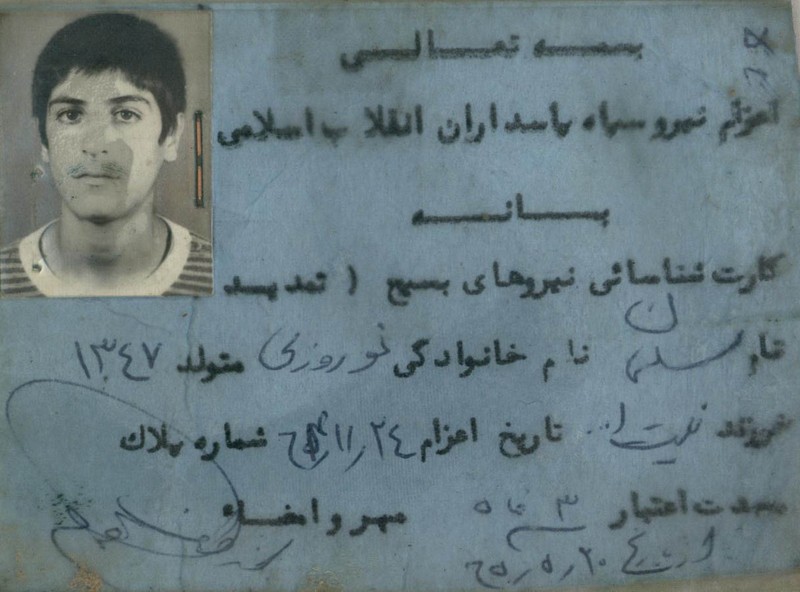 بسمه تعالی
اعزام نیرو سپاه پاسداران انقلاب اسلامی
بانه
کارت شناسائی نیروهای بسیج ( تمدید
نام سلمان نام خانوادگی نوروزی متولد ۱۳۴۷
فرزند تاریخ اعزام شماره پلاک
مدت اعتبار ۳ ماه مهر و امضاء
از تاریخ ۲۰/۵/۶۵